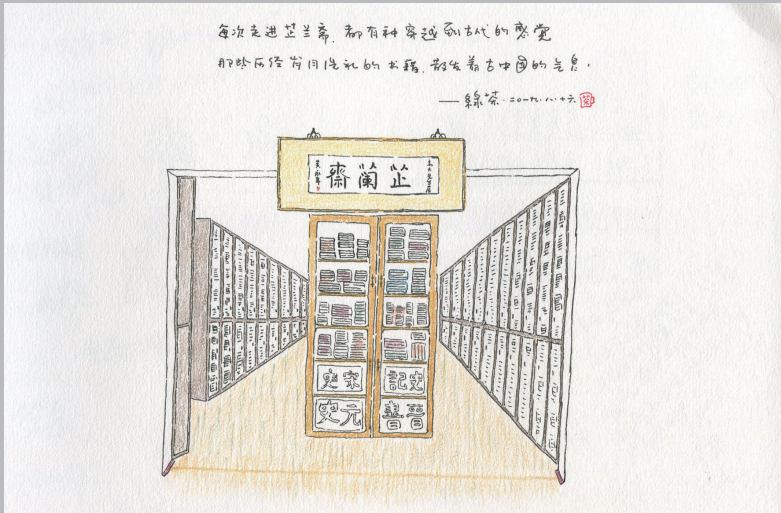 每次走进芷兰斋，都有种穿越到古代的感觉
那些历经岁月洗礼的书籍，散发着古中国的气息．
—— 綠茶．二〇一九．八．十六
芷蘭齋
宋史
史記
元史
晉書